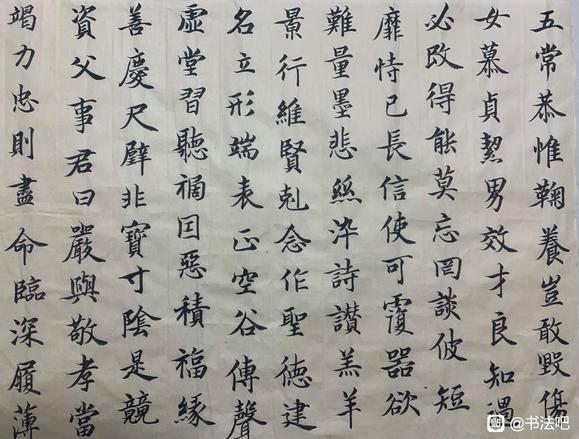 五常恭惟鞠養豈敢毀傷
女慕貞絜男效才良知過
必改得能莫忘罔談彼短
靡恃己長信使可覆器欲
難量墨悲絲染詩讚羔羊
景行維賢剋念作聖德建
名立形端表正空谷傳聲
虛堂習聽禍因惡積福緣
善慶尺璧非寶寸陰是競
資父事君曰嚴與敬孝當
竭力忠則盡命臨深履薄
@书法吧